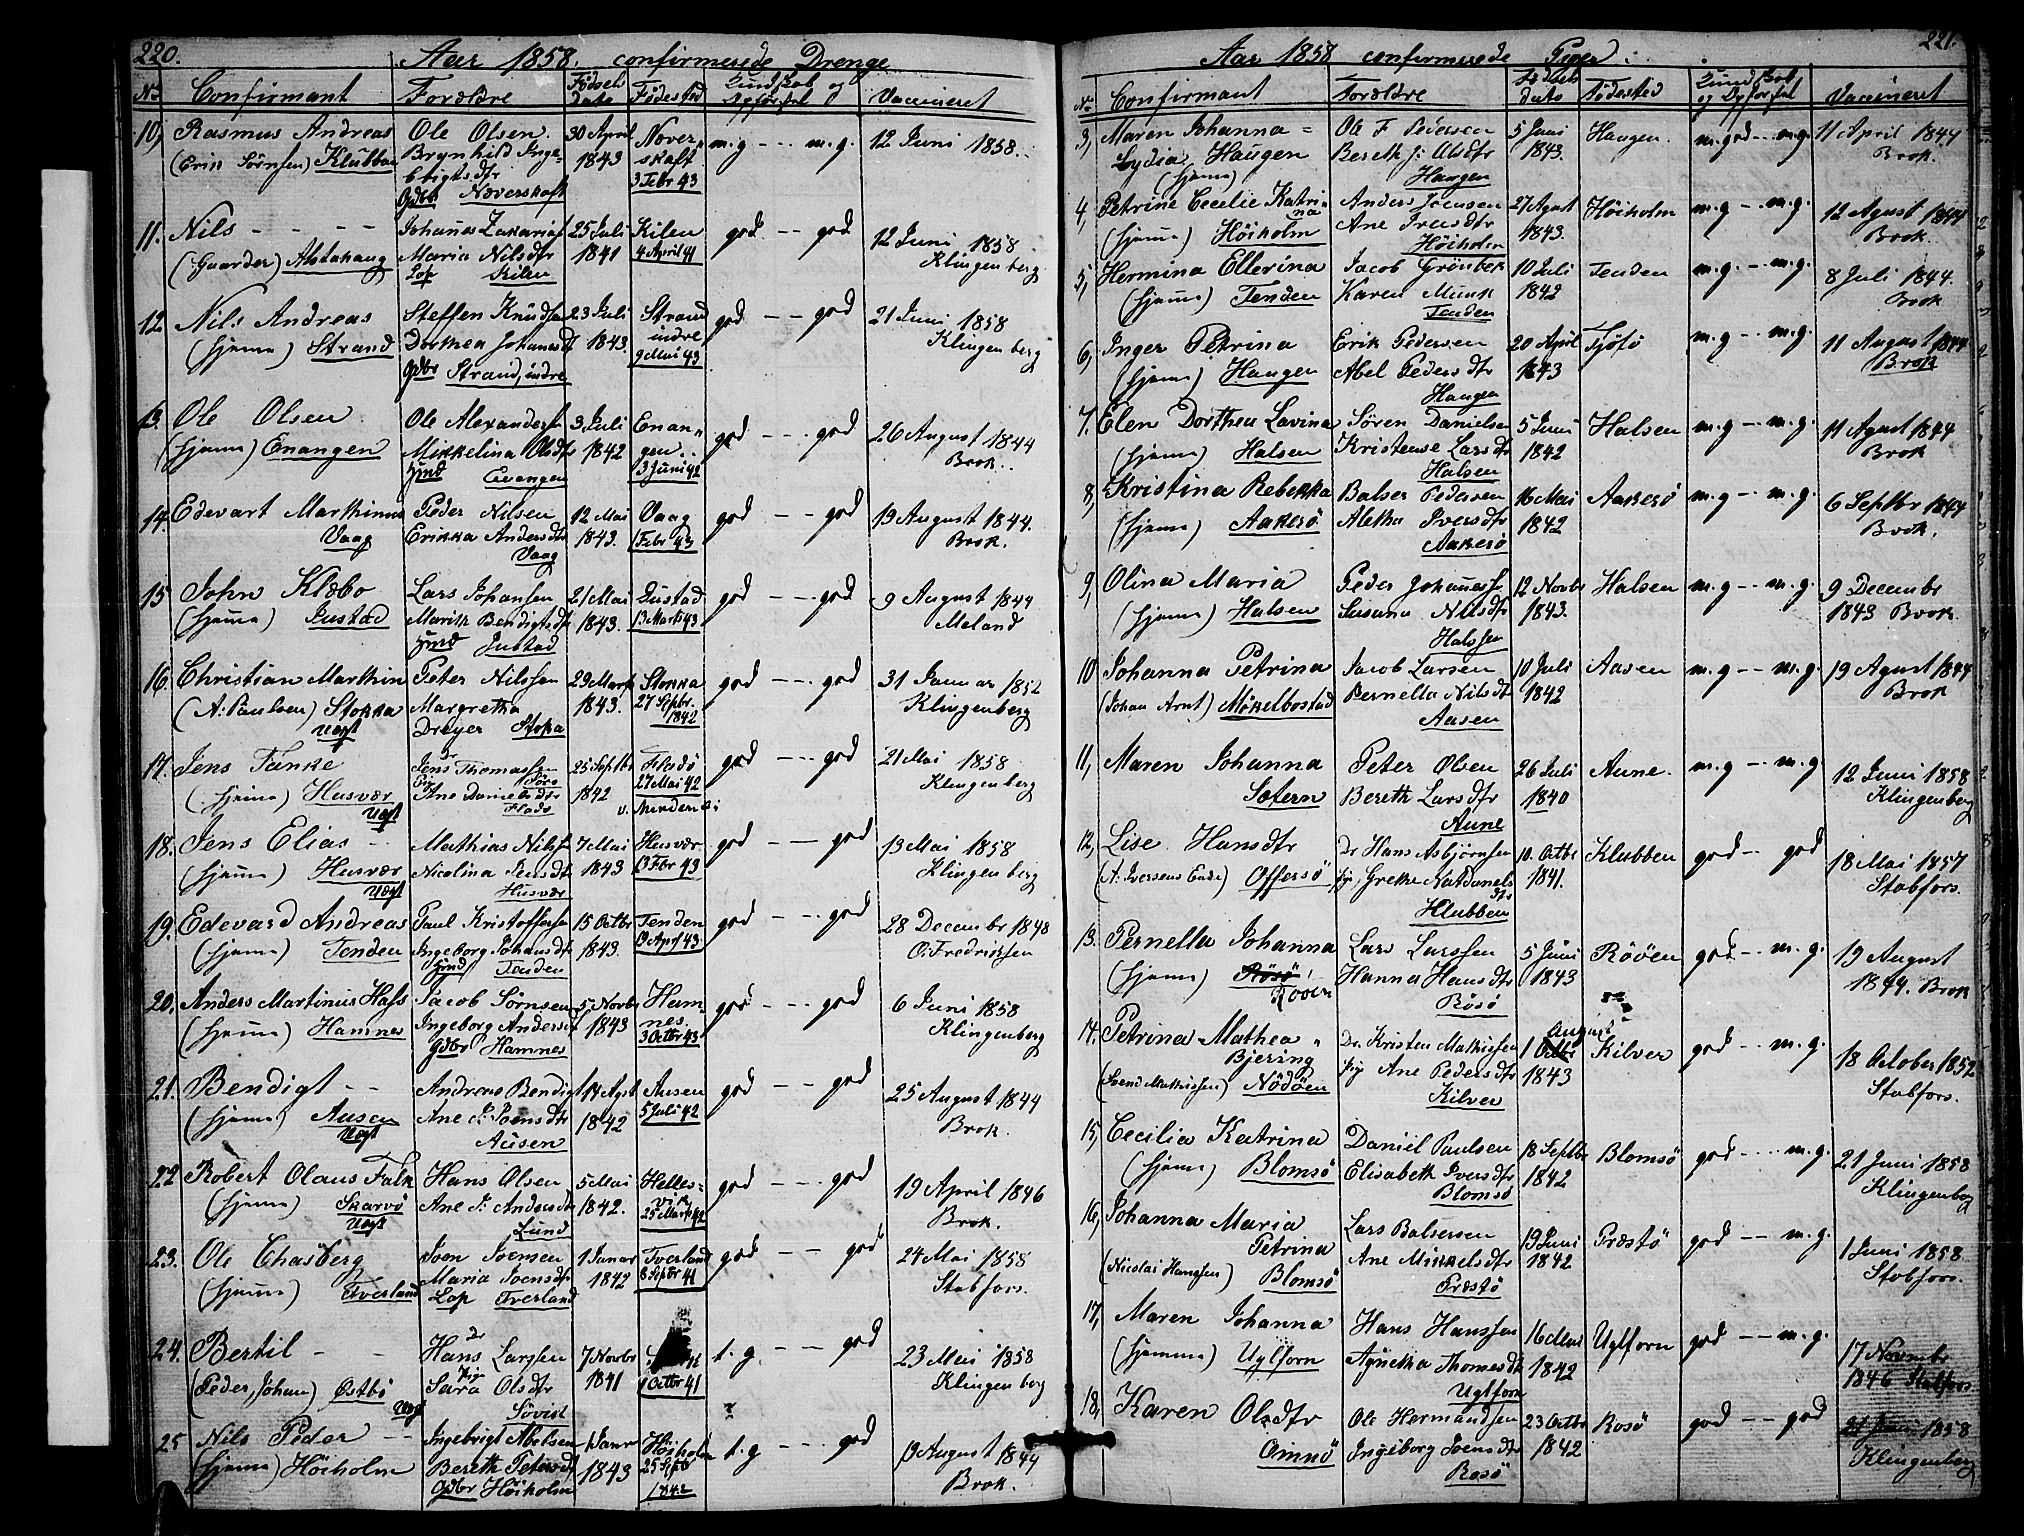 220.
Aar 1858. confirmerede Drenge
No Confirmant Forældre Fødsels Dato Fødested Kundskab og Opførsel Vaccineret
10, Rasmus Andreas Ole Olsen. 30 April Næver- m.g -- m.g. 12 Juni 1858.
(Erik Sørnsen) Klubben Brynhild Inge- 1843 skaft
brigtsdtr 3 Febr 43
Gdbr Næverskaft
11. Nils - - - - Johanes Zakarias 25 Juli Kilen god -- god 12 Juni 1858
(Gaarder) Alstahaug Maria Nilsdtr 1841 4 April 41 Klingenberg
Løs Kilen
12. Nils Andreas Steffen Knudsen 23 Juli Strand god -- god 21 Juni 1858
(hjeme) Strand Dorthea Johanesdt 1843. indre Klingenberg
Gdbr Strand, indre 9 Mai 43
13. Ole Olsen Ole Alexanders 3 Juli Enan- god -- god 26 August 1844
(hjeme) Enangen Mikkelina Olsdtr 1842 gen.. Brok..
Hmd Evangen 3 Juni 42
14. Edevart Marthinus Peder Nilsen 12 Mai Vaag god -- god 19 August 1844.
Vaag Erikka Andersdtr 1843. 1 Febr 43 Brok.
Vaag
15 John Klæbo Lars Johansen 21 Mai Justad god -- god 9 August 1844
(hjeme) Justad Marith Bendigtsdtr 1843. 13 Marts 43 Meland
Hmd Justad
16. Christian Marthin Peter Nilssen 29 Marts Stokka god -- god 31 Januar 1852
(A: Paulsen) Stokka Margretha 1843. 27 Septbr. Klingenberg
Vægt Dreyer Stoka 1842
17. Jens Tanke Jens Thomassen 25 Septbr Fladø god -- god 21 Mai 1858
(hjeme) Husvær Pig Ane Danielsdtr 1842 27 Mai 42 Klingenberg
Vægt Fladø
18. Jens Elias - Mathias Nilss 7 Mai Husvær god -- god 13 Mai 1858
(hjeme) Husvær Nicolina Jensdt 1843 13 Febr 43 Klingenberg
Vægt Husvær
19. Edevard Andreas Paul Kristoffersen 15 Octbr Tenden god -- god 28 December 1848
(hjeme) Tenden Ingeborg Johansdtr 1843. O. Fredriksen
Hmd Tenden
20. Anders Martinus Hass Jacob Sørnsen 5 Novbr Ham- god -- god 6 Juni 1858
(hjeme) Hamnes Ingeborg Andersdt 1843 nes. Klingenberg
Gdbr Hamnes 3 Octbr 43
21. Bendigt - - Andreas Bendigt 14 Agst Ausen god -- god 25 August 1844
(hjeme) Ausen Ane P. Joensdtr 1842 5 Juli 42 Brok.
Vægt Ausen
22 Robert Olaus Falk Hans Olsen 5 Mai Helles- god -- god 19 April 1846
(hjeme) Skarvø Ane P. Andersdtr 1842. vik Brok.
Vægt Lund 25 Marts 42
23. Ole Chasberg Joen Joensen 1 Januar Tverland god -- god 24 Mai 1858
(hjeme) Tverland Maria Joensdtr 1842 8 Septbr 41 Stabfors.
Løs Tverland
24. Bertil - - Dr Hans Larssen 7 Novbr t.g -- god 23 Mai 1858
(Peder, Johan) Østbø Pig Sara Olsdtr 1841 1 Octbr 41 Klingenberg
Vægt Søvist
25 Nils Peder - - Ingebrigt Abelsen 1 Januar Höiholm t.g -- god 19 August 1844
(hjeme) Höiholm Bereth Petersdt 1843 25 Septb Brok.
Gdbr Höiholm 1842
221.
Aar 1858 confirmerede Piger:
No Confirmant Forældre Fødsels dato Fødested Kundskab og Opførsel Vaccineret
3, Maren Johanna = Ole F Pedersen 5 Juni Haugen. m.god -- m.g. 11 April 1844
Lydia Haugen Bereth J: Olsdtr 1843. Brok.
(hjeme) Haugen
4, Petrine Cecelie Katrina Anders Joensen 27 Agust Höiholm m.g -- m.g. 12 Agust 1844
(hjeme) Höiholm Ane Iversdtr 1843. Brok.
Höiholm
5, Hermina Ellerina Jacob Grönbek 10 Juli Tenden m.g. -- m.g. 8 Juli 1844.
(hjeme) Tenden Karen Munk 1842 Brok
Tenden
6, Inger Petrina Erik Pedersen 20 April Tjøtø m.g -- m.g. 11 August 1844
(hjeme) Haugen Abel Pedersdtr 1843 Brok
Haugen
7. Elen Dorthea Lavina Sören Danielsen 5 Juni Halsen m.g -- m.g. 11 Agust 1844
(hjeme) Halsen Kristense Larsdtr 1842 Brok
Halsen
8, Kristina Rebekka Balser Pedersen 16 Mai Aakerø m.g -- m.g. 6 Septbr 1844
(hjeme) Aakerø Aletha Iversdtr 1842 Brok.
Aakerø
9, Olina Maria Peder Johanessen 12 Novbr Halsen m.g -- m.g 9 Decembr
(hjeme) Halsen Susana Nilsdtr 1843. 1843 Brok
Halsen
10 Johanna Petrina Jacob Larsen 10 Juli Aasen m.g -- m.g. 19 Agust 1844
(Johan Arnt) Mökelbostad Pernella Nilsdt 1842 Brok
Aasen
11, Maren Johanna Peter Olsen 26 Juli Aune. m.g -- m.g. 12 Juni 1858
Sætern Bereth Larsdtr 1840 Klingenberg
Aune
12, Lise. Hansdtr Dr Hans Asbjørnsen 10. Octbr Klubben god -- god 18 Mai 1857
(A: Iversens Enke) Offersö Pig, Grethe Natdanels 1841. Stabfors.
dtr
Klubben
13. Pernella Johanna Lars Larssen 5 Juni Röøen god -- m.g. 19 August
(hjeme) Rösö Hanna Hansdtr 1843 1844. Brok
Röøen Rösö
14. Petrina Mathea Dr. Kristen Mathissen 1 August Kilver god -- m.g. 18 October 1852
Bjering Pig Ane Pedersdtr 1843 Stabfors.
(Svend Mathissen) Nödöen Kilver
15, Cecilia Katrina Daniel Paulsen 18 Septbr Blomsö god -- m.g. 21 Juni 1858
(hjeme) Blomsö Elisabeth Iversdtr 1842 Klingenberg
Blomsö
16, Johanna Maria Lars Balsersen 19 Juni Præstö god -- m.g. 1 Juni 1858
Petrina Ane Mikkelsdtr 1842 Stabfors.
(Nicolai Hanssen) Blomsö Præstö
17, Maren Johanna Hans Hanssen 16 Mai Uglforn god -- m.g. 17 Novembr
(hjemme) Uglforn Agnetha Thomesdt 1842 1846 Stabfors
Uglforn
18, Karen Olsdtr Ole Hermandsen 23 Octbr Rosö god -- god 21 Juni 1858
Omnö Ingeborg Joensdtr 1842 Klingenberg
Rosö